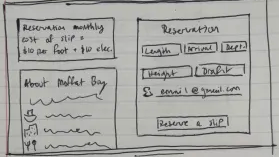 Reservation monthly
cost of slip =
$10 per foot + $10 elec.
About Moffat Bay
Reservation
Length Arrival Dept.
Height Draft
email@gmail.com
Reserve a slip